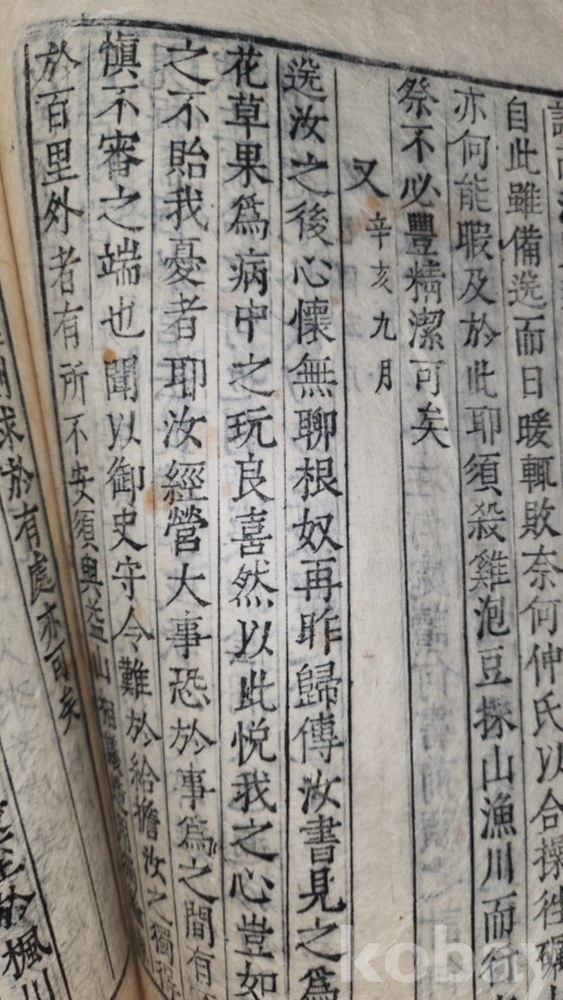 自此雖備選而日暖輒敗奈何伸氏以合操往
亦何能暇及於此耶須殺雞泡豆採山漁川而
祭不必豐精潔可矣
又 辛亥九月
送汝之後心懷無聊根奴再昨歸傳汝書見之爲
花草果爲病中之玩良喜然以此悅我之心豈如
之不貽我憂者耶汝經營大事恐於事爲之間有
慎不審之端也聞以御史守令難於給擔汝之獨
於百里外者有所不安須與益山
求於有處亦可矣
於楓川
kobay